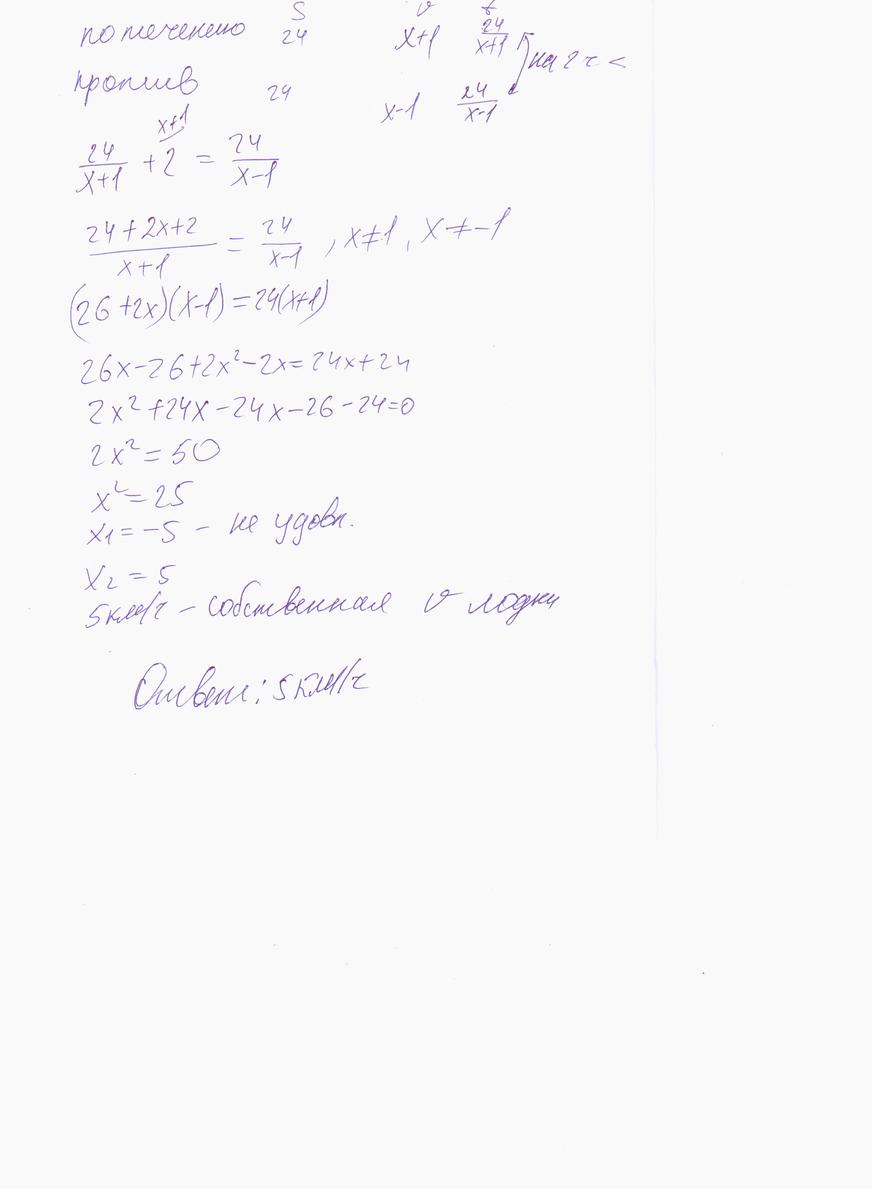 S v t
по течению 24 x+1 24/x+1 на 2 ч <
против 24 x-1 24/x-1
x+1
24/x+1 + 2 = 24/x-1
24+2x+2/x+1 = 24/x-1 , x≠1, x≠-1
(26+2x)(x-1)=24(x+1)
26x-26+2x²-2x=24x+24
2x²+24x-24x-26-24=0
2x²=50
x²=25
x₁=-5 - не удовл.
x₂=5
5 км/ч - собственная v лодки
Ответ: 5 км/ч